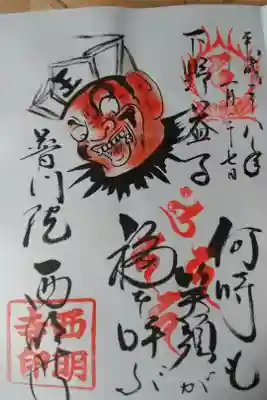 平成二十八年
月二十七日
下野益子
何時も
笑顔が
福を呼ぶ
王
普門院 西明寺
西明寺印